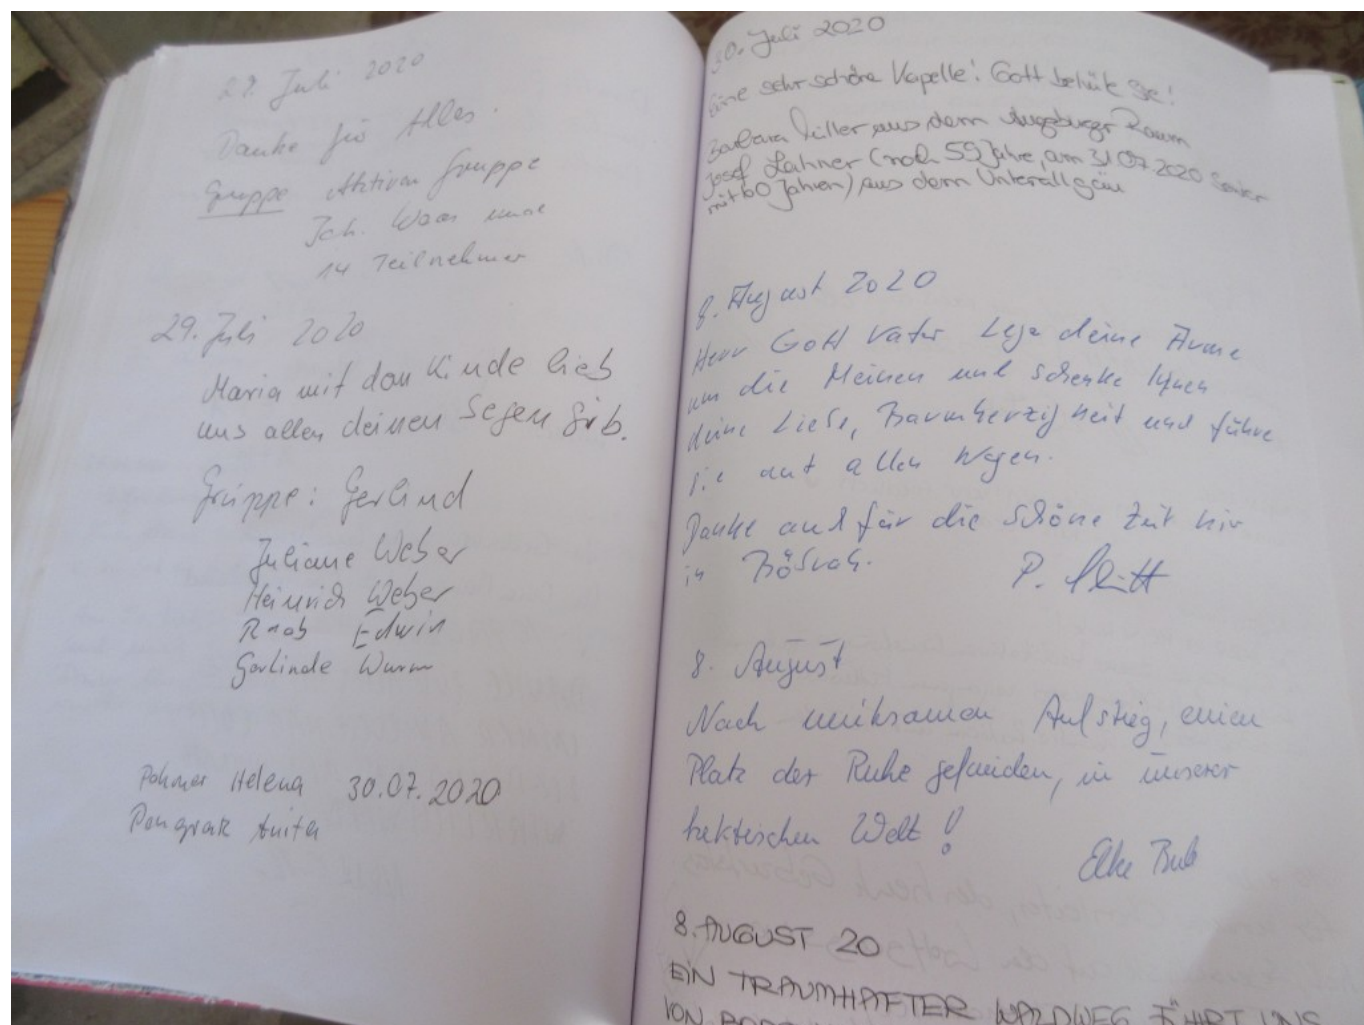 29. Juli 2020
Danke für Alles.
Gruppe Aktiven Gruppe
Joh. Waas und
14 Teilnehmer
29. Juli 2020
Maria mit dem Kinde lieb
uns allen deinen Segen gib.
Gruppe: Gerlind
Juliane Weber
Heinrich Weber
Raab Edwin
Gerlinde Wurm
Helena 30.07.2020
Anita
30. Juli 2020
Eine sehr schöne Kapelle! Gott behüte Sie!
Barbara aus dem Augsburger Raum
Josef Lahner (noch 59 Jahre, am 31.07.2020
mit 60 Jahren) aus dem Unterallgäu
8. August 2020
Herr Gott Vater Lege deine Arme
um die Meinen und schenke Ihnen
deine Liebe, Barmherzigkeit und führe
sie auf allen Wegen.
Danke auch für die schöne Zeit hier
in
P.
8. August
Nach mühsamen Aufstieg, einen
Platz der Ruhe gefunden, in unserer
hektischen Welt!
Elke
8. AUGUST 20
EIN TRAUMHAFTER WALDWEG FÜHRT UNS
VON